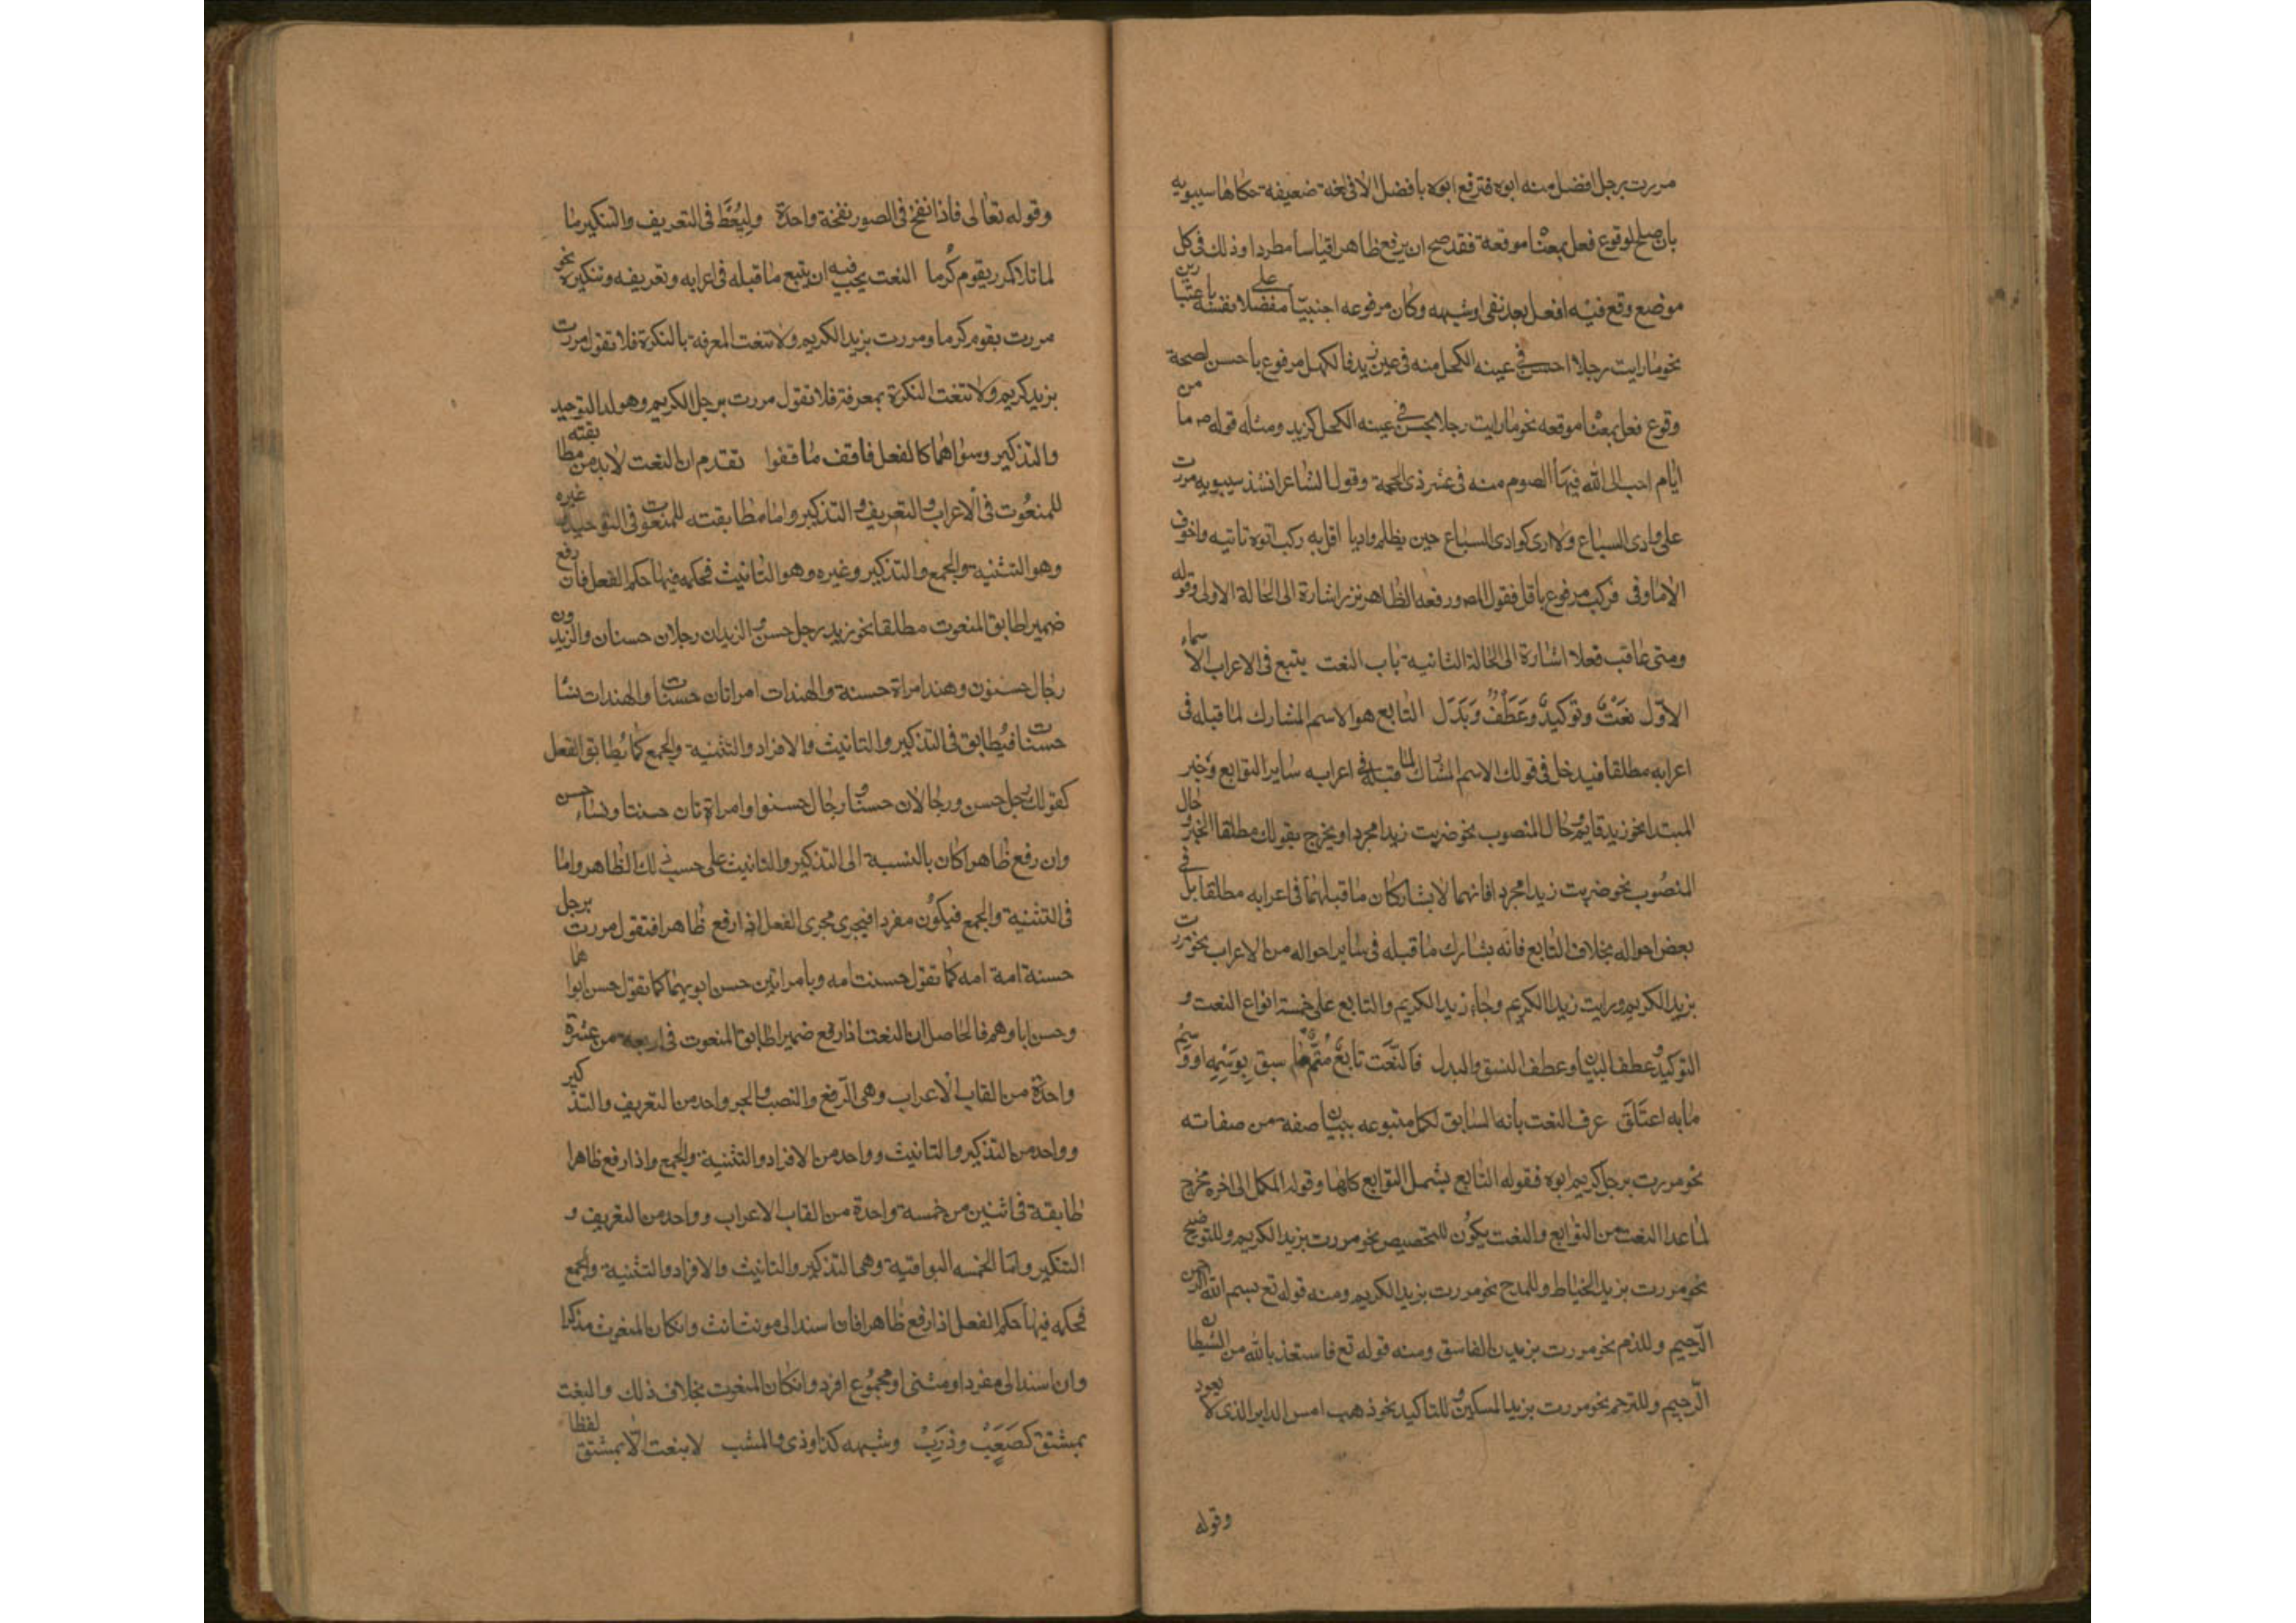 مررت برجل افضل منه ابوه فترفع ابوه بافضل الا فى لغة ضعيفة حكاها سيبويه
بان صلح لوقوع فعل بمعناه موقعه فقد صح ان يرفع ظاهرا قياسا مطردا وذلك فى كل
موضع وقع فيه افعل بعد نفى او شبهه وكان مرفوعه اجنبيا مفضلا على نفسه باعتبارين
نحو ما رايت رجلا احسن فى عينه الكحل منه فى عين زيد فالكحل مرفوع باحسن لصحة
وقوع فعل بمعناه موقعه نحو ما رايت رجلا يحسن فى عينه الكحل كزيد ومثله قوله ص ما من
ايام احب الى الله فيها الصوم منه فى عشر ذى الحجة وقول الشاعر انشد سيبويه مررت
على وادى السباع ولا ارى كوادى السباع حين يظلم واديا اقل به ركب اتوه تاتيه واخوف
الا ما وقى فركب مرفوع باقل فقول المص ورفعه الظاهر نزر اشارة الى الحالة الاولى وقوله
ومتى عاقب فعلا اشارة الى الحالة الثانية باب النعت يتبع فى الاعراب الاسماء
الاول نعت وتوكيد وعطف وبدل التابع هو الاسم المشارك لما قبله فى
اعرابه مطلقا فيدخل فى قولك الاسم المشارك لما قبله فى اعرابه ساير التوابع وخبر
المبتدا نحو زيد قايم وحال المنصوب نحو ضربت زيدا مجردا ويخرج بقولك مطلقا الخبر وحال
المنصوب نحو ضربت زيدا مجردا فانهما لا يشاركان ما قبلهما فى اعرابه مطلقا بل فى
بعض احواله بخلاف التابع فانه يشارك ما قبله فى ساير احواله من الاعراب نحو مررت
بزيد الكريم ورايت زيدا الكريم وجاء زيد الكريم والتابع على خمسة انواع النعت و
التوكيد وعطف البيان وعطف النسق والبدل فالنعت تابع متم ما سبق بوسمه او وسم
ما به اعتلق عرف النعت بانه السابق لكل متبوعه ببيان صفة من صفاته
نحو مررت برجل كريم ابوه فقوله التابع يشمل التوابع كلها وقوله المكمل الى اخره مخرج
لما عدا النعت من التوابع والنعت يكون للتخصيص نحو مررت بزيد الكريم وللتوضيح
نحو مررت بزيد الخياط وللمدح نحو مررت بزيد الكريم ومنه قوله تع بسم الله الرحمن
الرحيم وللذم نحو مررت بزيد الفاسق ومنه قوله تع فاستعذ بالله من الشيطان
الرجيم وللترحم نحو مررت بزيد المسكين وللتاكيد نحو ذهب امس الدابر الذى لا يعود
وقوله
وقوله تعالى فاذا نفخ فى الصور نفخة واحدة وليعط فى التعريف والتنكير ما
لما تلا كامرر بقوم كرما النعت يجب فيه ان يتبع ما قبله فى اعرابه وتعريفه وتنكيره نحو
مررت بقوم كرما ومررت بزيد الكريم ولا تنعت المعرفة بالنكرة فلا تقول مررت
بزيد كريم ولا تنعت النكرة بمعرفة فلا تقول مررت برجل الكريم وهو لدا التوحيد
والتذكير وسواهما كالفعل فاقف ما قفوا تقدم ان النعت لابد من مطابقته
للمنعوت فى الاعراب والتعريف والتذكير واما مطابقته للمنعوت فى التوحيد غيره
وهو التثنية والجمع والتذكير وغيره وهو التانيث فحكمه فيها حكم الفعل فان رفع
ضميرا طابق المنعوت مطلقا نحو زيد رجل حسن والزيدان رجلان حسنان والزيدون
رجال حسنون وهند امراة حسنة والهندات امراتان حسنتا والهندات نسا
حسنات فيطابق فى التذكير والتانيث والافراد والتثنية والجمع كما يطابق الفعل
كقولك رجل حسن ورجالان حسنا ورجال حسنوا وامراة تان حسنتا ونساء حسن
وان رفع ظاهرا كان بالنسبة الى التذكير والتانيث على حسب ذلك الظاهر واما
فى التثنية والجمع فيكون مفردا فيجرى مجرى الفعل اذا رفع ظاهرا فتقول مررت برجل
حسنة امة امه كما تقول حسنت امه وبامراتين حسن ابويهما كما تقول حسن ابواهما
وحسن اباوهم فالحاصل ان النعت اذا رفع ضميرا طابق المنعوت فى اربعة من عشرة
واحدة من القاب الاعراب وهى الرفع والنصب والجر واحد من التعريف والتذكير
وواحد من التذكير والتانيث وواحد من الافراد والتثنية والجمع واذا رفع ظاهرا
طابقة فى اثنين من خمسة واحدة من القاب الاعراب وواحد من التعريف و
التنكير واما الخمسه البواقية وهى التذكير والتانيث والافراد والتثنية والجمع
فحكمه فيها حكم الفعل اذا رفع ظاهرا فان اسند الى مونث انث وان كان المنعوت مذكرا
وان اسند الى مفرد او مثنى او مجموع افرد وان كان المنعوت بخلاف ذلك والنعت
بمشتق كصعب وذرب وشبهه كذا وذى والمنتسب لا ينعت الا بمشتق لفظا